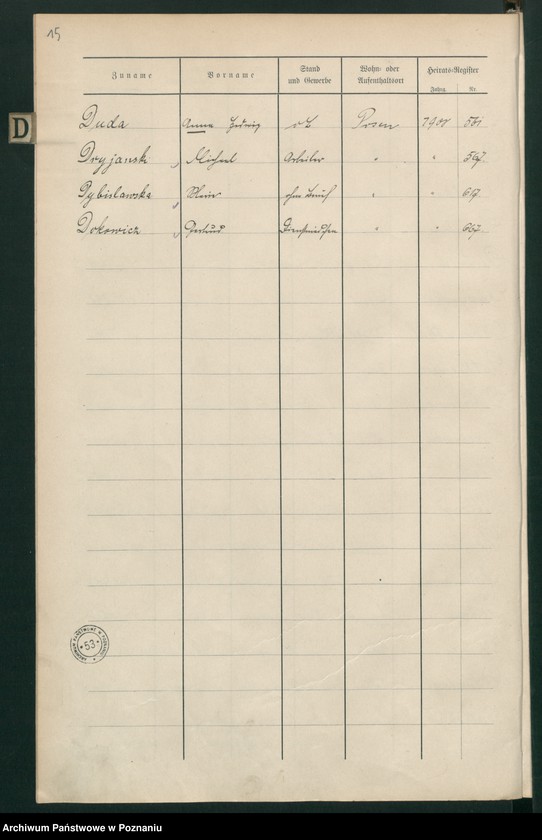 15
D
Zuname Vorname Stand und Gewerbe Wohn- oder Aufenthaltsort Heirats-Register
Jahrg. Nr.
Duda Anna Hedwig o/B Posen 1900 551
Dryjanski Michael Arbeiter " " 567
Dybislawska Marie ohne Beruf " " 617
Dokowicz Gertrud Dienstmädchen " " 667
ARCHIWUM PAŃSTWOWE W POZNANIU
* 53 *
Archiwum Państwowe w Poznaniu